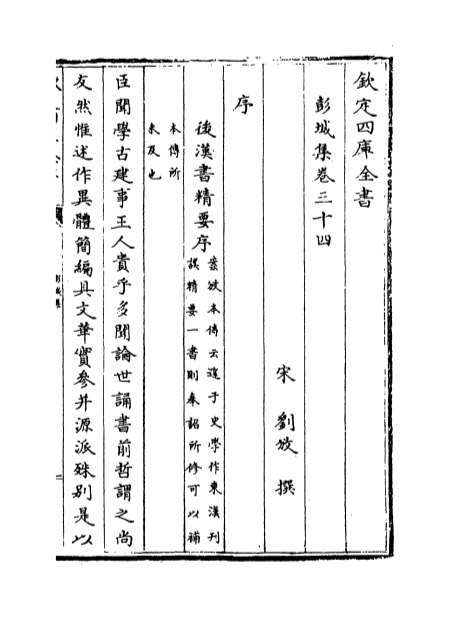 欽定四庫全書
彭城集卷三十四
宋 劉攽 撰
序
後漢書精要序
案攽本傳云邃于史學作東漢刊
誤精要一書則奉詔所修可以補
本傳所
未及也
臣聞學古建事王人貴乎多聞論世誦書前哲謂之尚
友然惟述作異體簡編具文華實參并源派殊別是以